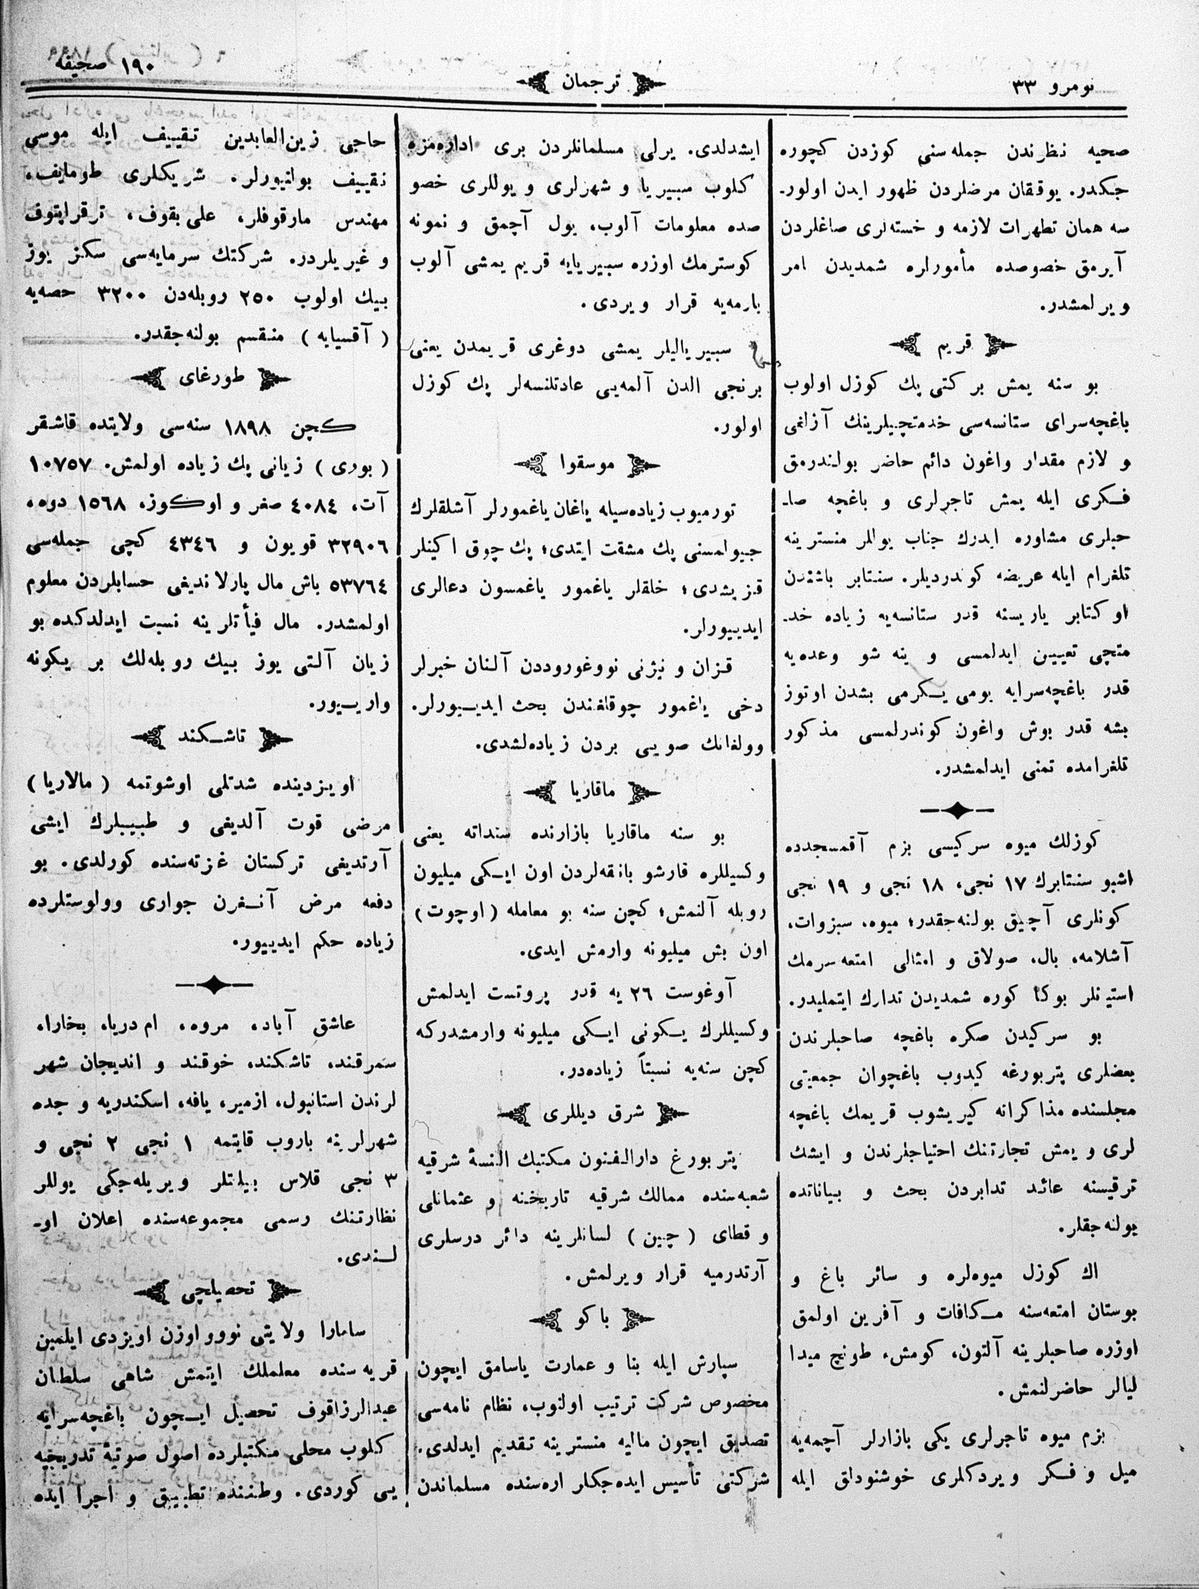 نومرو ٣٣
ترجمان
١٩٠ صحیفه
صحیه نظرندن جمله‌سنی کوزدن کچوره
جکدر. یوققان مرضلردن ظهور ایدن اولور-
سه همان تطهرات لازمه و خسته‌لری صاغلردن
آیرمق خصوصده مأمورلره شمدیدن امر
ویرلمشدر.
قریم
بو سنه یمش برکتی پك کوزل اولوب
باغچه‌سرای ستانسه‌سی خدمتچیلرینك آزلغی
و لازم مقدار واغون دائم حاضر بولندرمق
فکری ایله یمش تاجرلری و باغچه صا-
حبلری مشاوره ایدرك جناب یوللر منسترینه
تلغرام ایله عریضه کوندردیلر. سنتابر باشندن
اوکتابر یاریسنه قدر ستانسه‌یه زیاده خد-
متچی تعیین ایدلمسی و ینه شو وعده‌یه
قدر باغچه‌سرایه یومی یکرمی بشدن اوتوز
بشه قدر بوش واغون کوندرلمسی مذکور
تلغرامده تمنی ایدلمشدر.
کوزلك میوه سرکیسی بزم آقمسجدده
اشبو سنتابرك ١٧ نجی، ١٨ نجی و ١٩ نجی
کونلری آچیق بولنه‌جقدر؛ میوه، سبزوات،
آشلامه، بال، صولاق و امثالی امتعه سرمك
استینلر بوکا کوره شمدیدن تدارك ایتملیدر.
بو سرکیدن صکره باغچه صاحبلرندن
بعضلری پتربورغه کیدوب باغچوان جمعیتی
مجلسنده مذاکرانه کیریشوب قریمك باغچه
لری و یمش تجارتنك احتیاجلرندن و ایشك
ترقیسنه عائد تدابردن بحث و بیاناتده
بولنه‌جقلر.
اك کوزل میوه‌لره و سائر باغ و
بوستان امتعه‌سنه مکافات و آفرین اولمق
اوزره صاحبلرینه آلتون، کومش، طونچ میدا
لیالر حاضرلنمش.
بزم میوه تاجرلری یکی بازارلر آچمه‌یه
میل و فکر ویردکلری خوشنودلق ایله
ایشدلدی. یرلی مسلمانلردن بری اداره‌مزه
کلوب سبیریا و شهرلری و یوللری خصو
صده معلومات آلوب، یول آچمق و نمونه
کوسترمك اوزره سبیریایه قریم یمشی آلوب
بارمه‌یه قرار ویردی.
سبیریالیلر یمشی دوغری قریمدن یعنی
برنجی الدن آلمه‌یی عادتلنسه‌لر پك کوزل
اولور.
موسقوا
تورمیوب زیاده‌سیله یاغان یاغمورلر آشلقلرك
جیولمسنی پك مشقت ایتدی؛ پك چوق اکینلر
قزیشدی؛ خلقلر یاغمور یاغمسون دعالری
ایدییورلر.
قزان و نیژنی نووغوروددن آلنان خبرلر
دخی یاغمور چوقلغندن بحث ایدییورلر.
وولغانك صویی بردن زیاده‌لشدی.
ماقاریا
بو سنه ماقاریا بازارنده سنداته یعنی
وکسیللره قارشو بانقه‌لردن اون ایکی میلیون
روبله آلنمش؛ کچن سنه بو معامله (اوچوت)
اون بش میلیونه وارمش ایدی.
آوغوست ٢٦ یه قدر پروتست ایدلمش
وکسیللرك یکونی ایکی میلیونه وارمشدرکه
کچن سنه‌یه نسبتاً زیاده‌در.
شرق دیللری
پتربورغ دارالفنون مکتبك السنهٔ شرقیه
شعبه‌سنده ممالك شرقیه تاریخنه و عثمانلی
و قطای (چین) لسانلرینه دائر درسلری
آرتدرمیه قرار ویرلمش.
باکو
سپارش ایله بنا و عمارت یاسامق ایچون
مخصوص شرکت ترتیب اولنوب، نظام نامه‌سی
تصدیق ایچون مالیه منسترینه تقدیم ایدلدی.
شرکتی تأسیس ایده‌جکلر اره‌سنده مسلماندن
حاجی زین‌العابدین تقییف ایله موسی
نقییف بولنیورلر. شریکلری طومایف،
مهندس مارقوفلر، علی‌بقوف،
و غیریلردر. شرکتك سرمایه‌سی سکز یوز
بیك اولوب ٢٥٠ روبله‌دن ٣٢٠٠ حصه‌یه
(آقسیایه) منقسم بولنه‌جقدر.
طورغای
کچن ١٨٩٨ سنه‌سی ولایتده قاشقر
(بوری) زیانی پك زیاده اولمش. ١٠٧٥٧
آت، ٤٠٨٤ صغر و اوکوز، ١٥٦٨ دوه،
٣٢٩٠٦ قویون و ٤٣٤٦ کچی جمله‌سی
٥٣٧٦٤ باش مال پارلاندیغی حسابلردن معلوم
اولمشدر. مال فیأتلرینه نسبت ایدلدکده بو
زیان آلتی یوز بیك روبله‌لك بر یکونه
وارییور.
تاشکند
اویزدینده شدتلی اوشوتمه (مالاریا)
مرضی قوت آلدیغی و طبیبلرك ایشی
آرتدیغی ترکستان غزته‌سنده کورلدی. بو
دفعه مرض آنغرن جواری وولوستلرده
زیاده حکم ایدییور.
عاشق آباد، مروه، ام دریا، بخارا،
سمرقند، تاشکند، خوقند و اندیجان شهر
لرندن استانبول، ازمیر، یافه، اسکندریه و جده
شهرلرینه باروب قایتمه ١ نجی ٢ نجی و
٣ نجی قلاس بیلتلر ویریله‌جکی یوللر
نظارتنك رسمی مجموعه‌سنده اعلان او-
لندی.
تحصیلچی
سامارا ولایتی نوووازن اویزدی ایلمین
قریه‌سنده معلملك ایتمش شاهی سلطان
عبدالرزاقوف تحصیل ایچون باغچه‌سرایه
کلوب محلی مکتبلرده اصول صوتیهٔ تدریجیه
یی کوردی. وطننده تطبیق و اجرا ایده